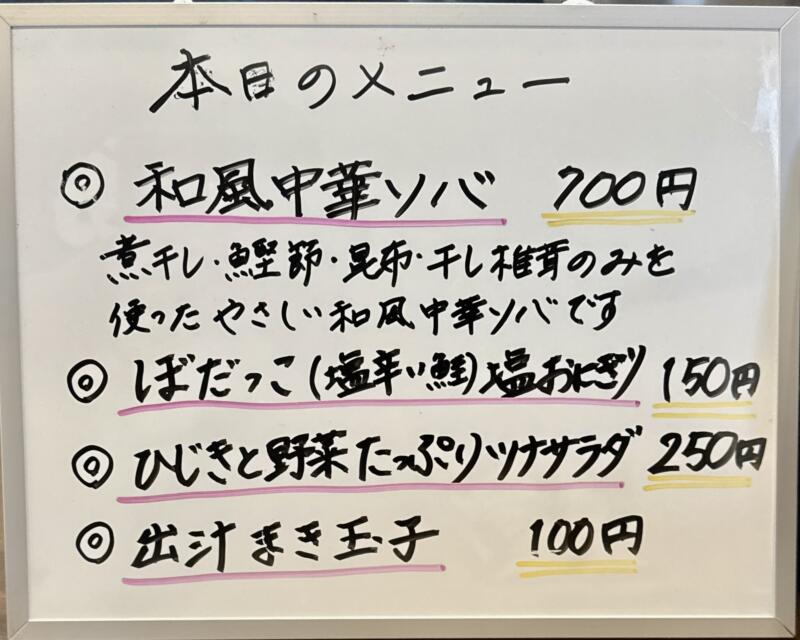 本日のメニュー
◎ 和風中華ソバ 700円
煮干し・鰹節・昆布・干し椎茸のみを
使ったやさしい和風中華ソバです
◎ ぼだっこ(塩辛い鮭)塩おにぎり 150円
◎ ひじきと野菜たっぷりツナサラダ 250円
◎ 出汁まき玉子 100円